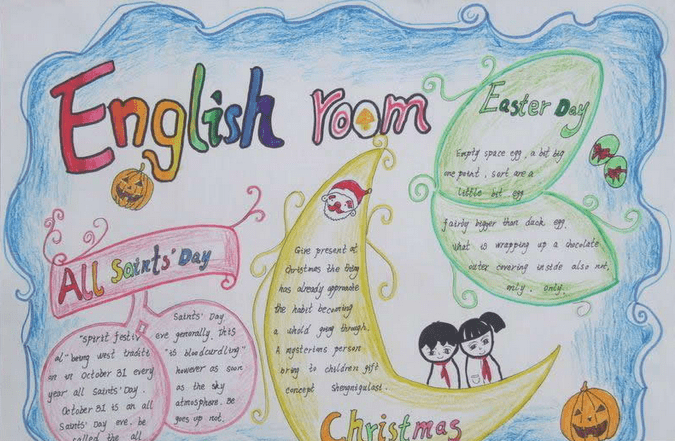 English room
Easter Day
Empty space egg, a bit big
one point, sort are a
little bit egg
fairly bigger than duck egg.
What is wrapping up a chocolate
outer covering inside also not,
only. only.
All Saints' Day
"Spirit festiv
al" being west traditi
on on October 31 every
year all Saints' Day.
October 31 is an all
Saints' Day eve. be
called the all
Saints' Day
eve generally. This
"is bloodcurdling"
however as soon
as the sky
atmosphere. Be
goes up not.
Give present at
Christmas the thing
has already approximate
the habit becoming
a whold going through.
A mysterious person
bring to children gift
concept Shengnigulast.
Christmas